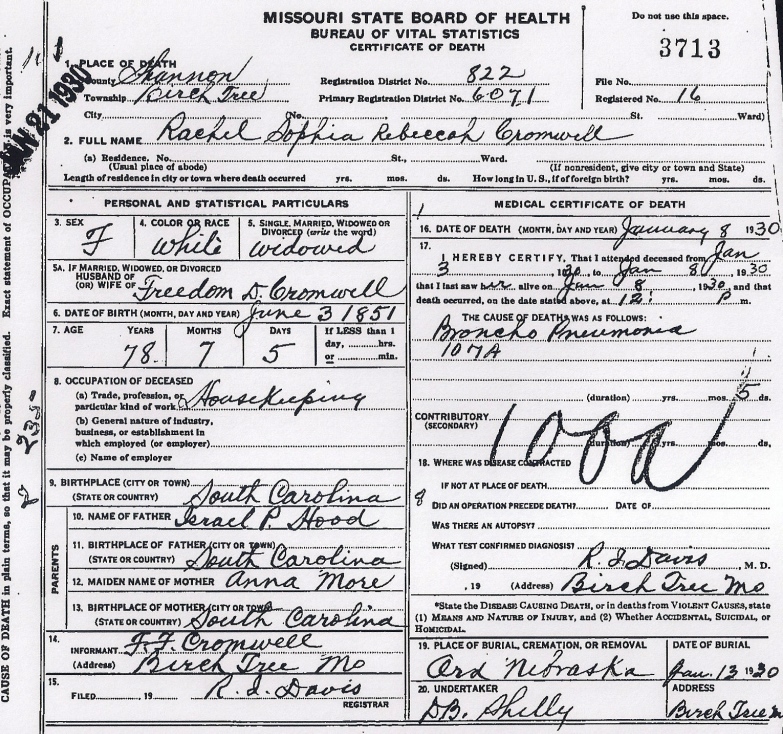 MISSOURI STATE BOARD OF HEALTH
BUREAU OF VITAL STATISTICS
CERTIFICATE OF DEATH
Do not use this space.
3713
1. PLACE OF DEATH
County Shannon
Township Birch Tree
City
Registration District No. 822
Primary Registration District No. 6071
(No. St. Ward)
File No.
Registered No. 16
21 1930
2. FULL NAME Rachel Sophia Rebeccah Cromwell
(a) Residence, No. St., Ward.
(Usual place of abode) (If nonresident, give city or town and State)
Length of residence in city or town where death occurred yrs. mos. ds. How long in U.S., if of foreign birth? yrs. mos. ds.
PERSONAL AND STATISTICAL PARTICULARS
3. SEX
F
4. COLOR OR RACE
White
5. SINGLE, MARRIED, WIDOWED OR
DIVORCED (write the word)
widowed
5A. IF MARRIED, WIDOWED, OR DIVORCED
HUSBAND OF
(OR) WIFE OF Freedom D. Cromwell
6. DATE OF BIRTH (MONTH, DAY AND YEAR) June 3 1851
7. AGE YEARS MONTHS DAYS If LESS than 1
day, hrs.
or min.
78 7 5
8. OCCUPATION OF DECEASED
(a) Trade, profession, or
particular kind of work Housekeeping
(b) General nature of industry,
business, or establishment in
which employed (or employer)
(c) Name of employer
9. BIRTHPLACE (CITY OR TOWN)
(STATE OR COUNTRY) South Carolina
PARENTS
10. NAME OF FATHER Israel P. Hood
11. BIRTHPLACE OF FATHER (CITY OR TOWN)
(STATE OR COUNTRY) South Carolina
12. MAIDEN NAME OF MOTHER Anna More
13. BIRTHPLACE OF MOTHER (CITY OR TOWN)
(STATE OR COUNTRY) South Carolina
14.
INFORMANT F. F. Cromwell
(Address) Birch Tree Mo
15.
FILED , 19 R. I. Davis
REGISTRAR
MEDICAL CERTIFICATE OF DEATH
16. DATE OF DEATH (MONTH, DAY AND YEAR) January 8 1930
17.
I HEREBY CERTIFY, That I attended deceased from Jan
3 1930, to Jan 8, 1930
that I last saw her alive on Jan 8, 1930 and that
death occurred, on the date stated above, at 12: P m.
THE CAUSE OF DEATH WAS AS FOLLOWS:
Broncho Pneumonia
107A
(duration) yrs. mos. 5 ds.
CONTRIBUTORY
(SECONDARY)
(duration) yrs. mos. ds.
18. WHERE WAS DISEASE CONTRACTED
IF NOT AT PLACE OF DEATH
8 DID AN OPERATION PRECEDE DEATH? DATE OF
WAS THERE AN AUTOPSY?
WHAT TEST CONFIRMED DIAGNOSIS?
(Signed) R. I. Davis, M. D.
, 19 (Address) Birch Tree Mo
*State the DISEASE CAUSING DEATH, or in deaths from VIOLENT CAUSES, state
(1) MEANS AND NATURE OF INJURY, and (2) Whether ACCIDENTAL, SUICIDAL, or
HOMICIDAL.
19. PLACE OF BURIAL, CREMATION, OR REMOVAL
Ord Nebraska
DATE OF BURIAL
Jan. 13 1930
20. UNDERTAKER
D.B. Shelly
ADDRESS
Birch Tree
CAUSE OF DEATH in plain terms, so that it may be properly classified. Exact statement of OCCUPATION is very important.